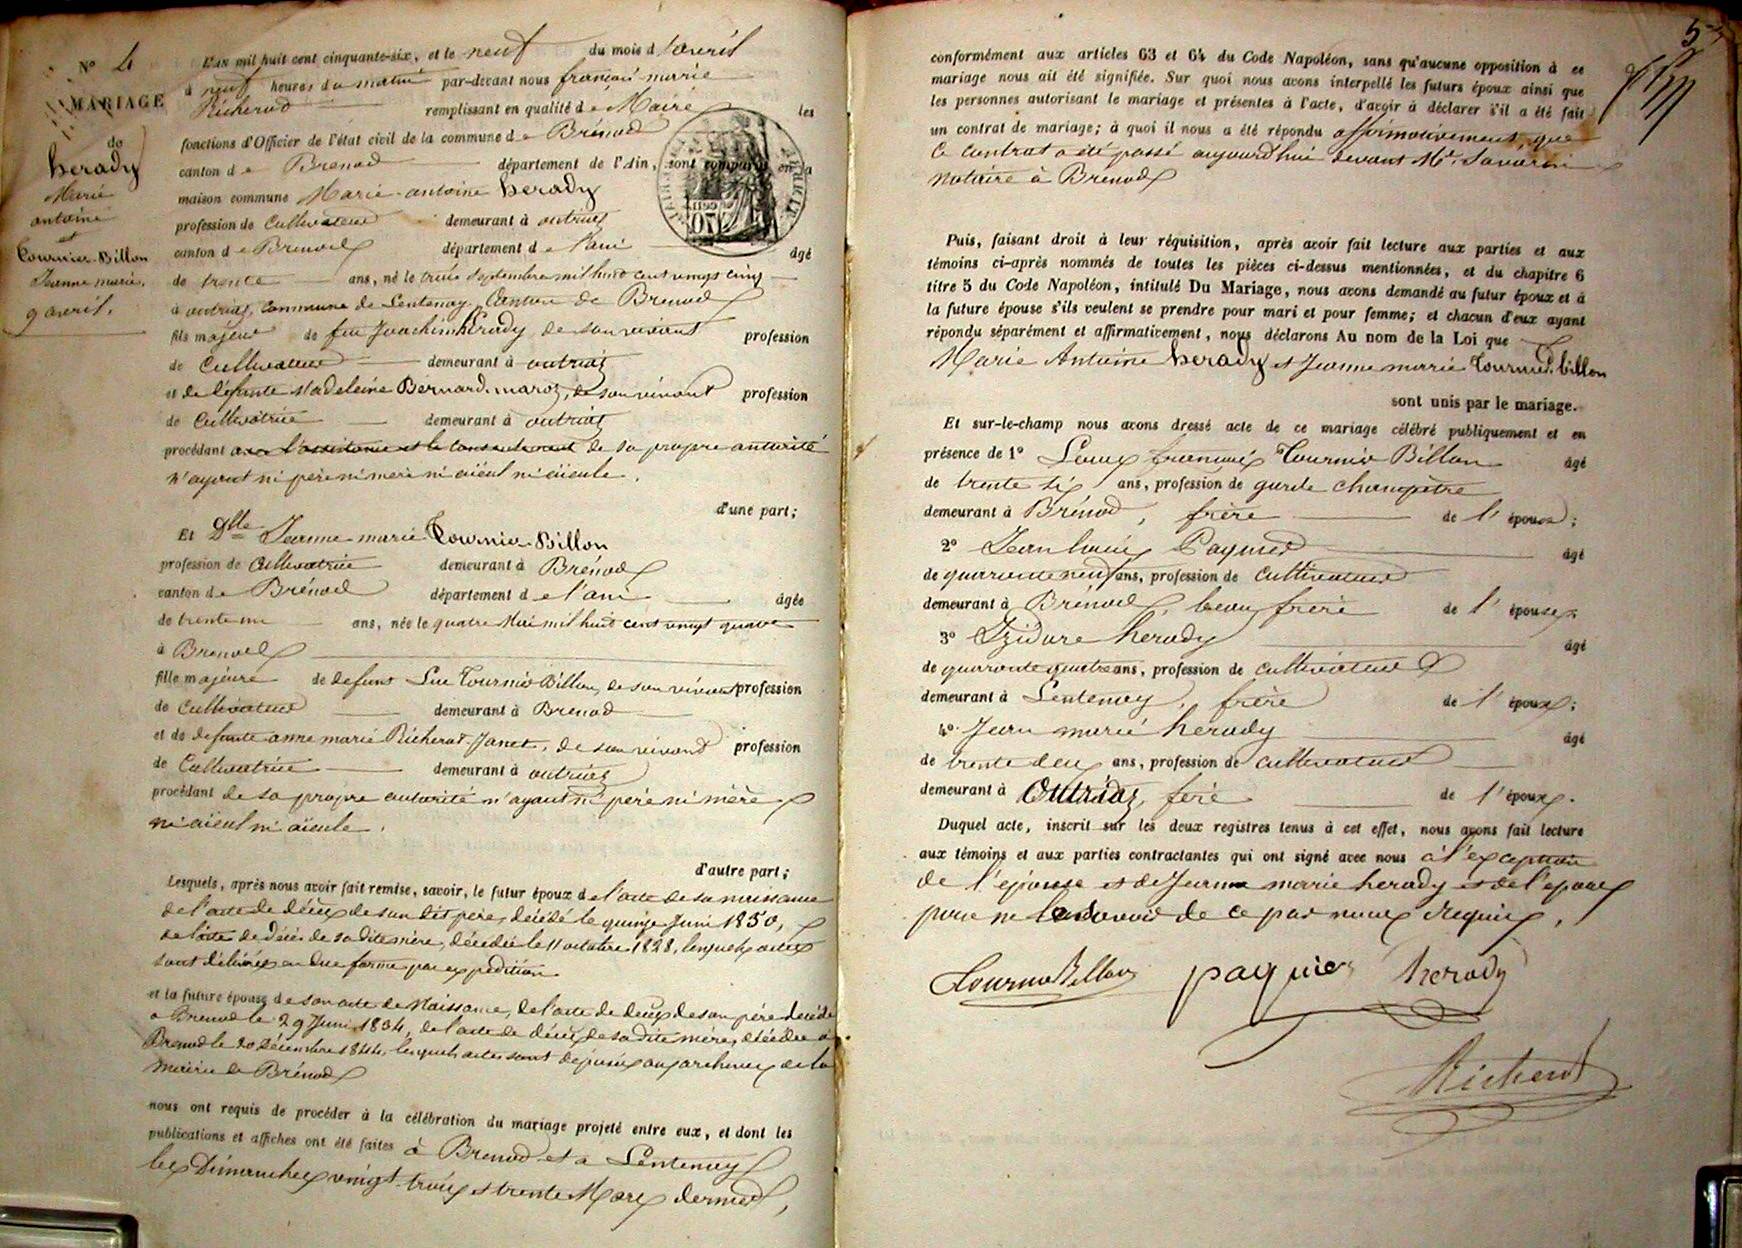 N° 4
MARIAGE
de
herady
Marie
antoine
et
Tournier-Billon
Jeanne marie.
9 avril.
L'AN mil huit cent cinquante-six, et le neuf du mois d'avril
à neuf heures du matin par-devant nous françois marie
Richerod remplissant en qualité de Maire les
fonctions d'Officier de l'état civil de la commune de Brénod
canton de Brenod département de l'Ain, sont comparus en la
maison commune Marie antoine herady
profession de Cultivateur demeurant à outriaz
canton de Brenod département de l'ain âgé
de trente ans, né le treize septembre mil huit cent vingt cinq
à outriaz, commune de Lentenay, Canton de Brenod
fils majeur de feu Joachim herady, de son vivant profession
de Cultivateur demeurant à outriaz
et de défunte Madeleine Bernard-maroz, de son vivant profession
de Cultivatrice demeurant à outriaz
procédant avec l'assistance et le consentement de sa propre autorité
n'ayant ni père ni mère ni aïeul ni aïeule.
d'une part;
Et Dlle Jeanne marie Tournier-Billon
profession de Cultivatrice demeurant à Brénod
canton de Brénod département de l'ain âgée
de trente un ans, née le quatre Mai mil huit cent vingt quatre
à Brenod
fille majeure de defunt Luc Tournier Billon, de son vivant profession
de Cultivateur demeurant à Brenod
et de defunte anne marie Richerot-Janet, de son vivant profession
de Cultivatrice demeurant à outriaz
procédant de sa propre autorité n'ayant ni père ni mère
ni aïeul ni aïeule.
d'autre part;
Lesquels, après nous avoir fait remise, savoir, le futur époux de l'acte de sa naissance
de l'acte de décès de son dit père, décédé le quinze Juin 1850,
de l'acte de décès de sa dite mère, décédée le 11 octobre 1828, lesquels actes
sont délivrés en due forme par expédition
et la future épouse de son acte de Naissance, de l'acte de decès de son père decédé
a Brenod le 29 Juin 1834, de l'acte de décès de sa dite mère, décédée a
Brenod le 20 Décembre 1844, lesquels actes sont déposés aux archives de la
mairie de Brénod
nous ont requis de procéder à la célébration du mariage projeté entre eux, et dont les
publications et affiches ont été faites à Brenod et a Lentenay
les Dimanches vingt-trois et trente Mars dernier,
5
conformément aux articles 63 et 64 du Code Napoléon, sans qu'aucune opposition à ce
mariage nous ait été signifiée. Sur quoi nous avons interpellé les futurs époux ainsi que
les personnes autorisant le mariage et présentes à l'acte, d'avoir à déclarer s'il a été fait
un contrat de mariage; à quoi il nous a été répondu affirmativement, que
ce contrat a été passé aujourd'hui devant Me Savarin
notaire à Brenod
Puis, faisant droit à leur réquisition, après avoir fait lecture aux parties et aux
témoins ci-après nommés de toutes les pièces ci-dessus mentionnées, et du chapitre 6
titre 5 du Code Napoléon, intitulé Du Mariage, nous avons demandé au futur époux et à
la future épouse s'ils veulent se prendre pour mari et pour femme; et chacun d'eux ayant
répondu séparément et affirmativement, nous déclarons Au nom de la Loi que
Marie Antoine herady et Jeanne marie Tournier-billon
sont unis par le mariage.
Et sur-le-champ nous avons dressé acte de ce mariage célébré publiquement et en
présence de 1° françois Tournier Billon âgé
de trente six ans, profession de garde champêtre
demeurant à Brénod, frère de l'épouse;
2° Jean louis Paquier âgé
de quarante neuf ans, profession de cultivateur
demeurant à Brénod, beau frère de l'épouse;
3° Izidore herady âgé
de quarante quatre ans, profession de cultivateur
demeurant à Lentenay, frère de l'époux;
4° Jean marie herady âgé
de trente deux ans, profession de cultivateur
demeurant à Outriaz, frère de l'époux.
Duquel acte, inscrit sur les deux registres tenus à cet effet, nous avons fait lecture
aux témoins et aux parties contractantes qui ont signé avec nous à l'exception
de l'épouse et de Jean marie herady et de l'époux
pour ne le savoir de ce par nous requis.
Tournier Billon paquier herady
Richerod